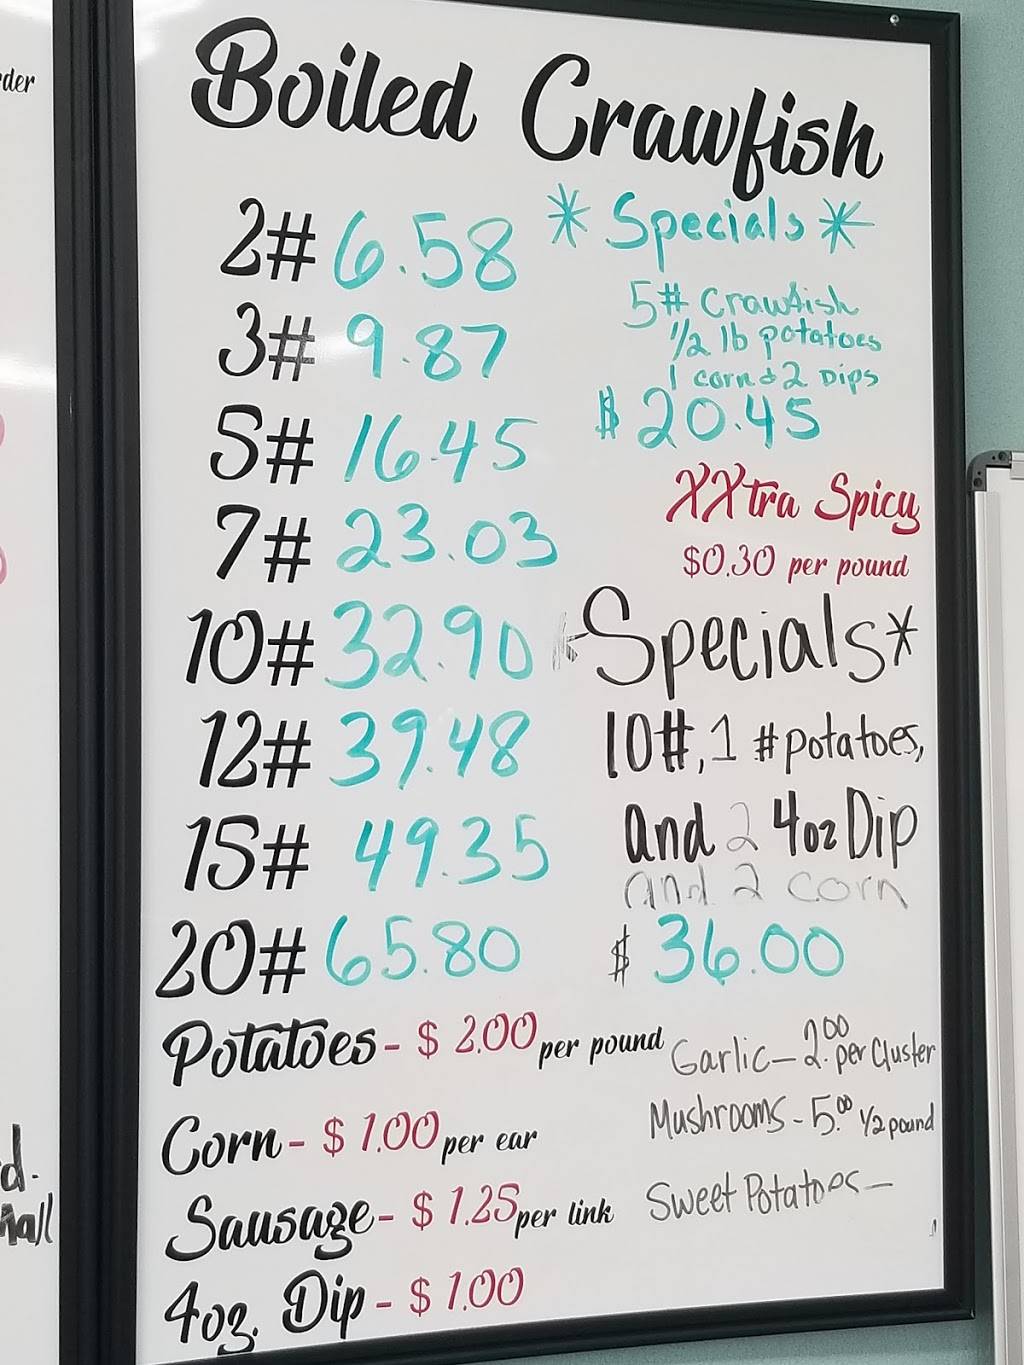 rder
Boiled Crawfish
2# 6.58
3# 9.87
5# 16.45
7# 23.03
10# 32.90
12# 39.48
15# 49.35
20# 65.80
*Specials*
5# Crawfish
1/2 lb potatoes
1 corn & 2 Dips
$20.45
XXtra Spicy
$0.30 per pound
*Specials*
10#, 1 #potatoes,
and 2 4oz Dip
and 2 corn
$36.00
Potatoes - $2.00 per pound
Corn - $1.00 per ear
Sausage - $1.25 per link
4oz. Dip - $1.00
Garlic - 2.00 per Cluster
Mushrooms - 5.00 1/2 pound
Sweet Potatoes -
d.